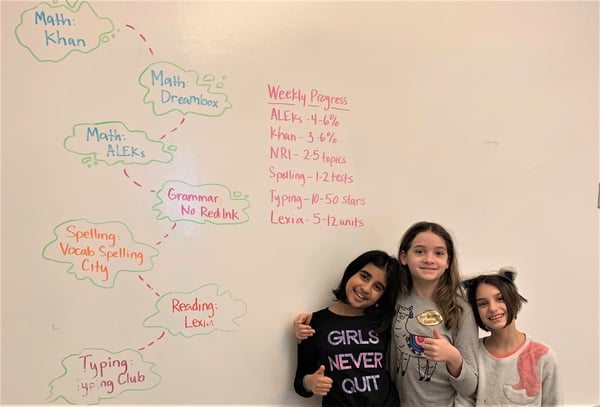 Math:
Khan
Math:
Dreambox
Math:
ALEKs
Grammar:
No Red Ink
Spelling:
Vocab Spelling
City
Reading:
Lexia
Typing:
Typing Club
Weekly Progress
ALEKs - 4-6%
Khan - 3-6%
NRI - 2-5 topics
Spelling - 1-2 tests
Typing - 10-50 stars
Lexia - 5-12 units
GIRLS
NEVER
QUIT